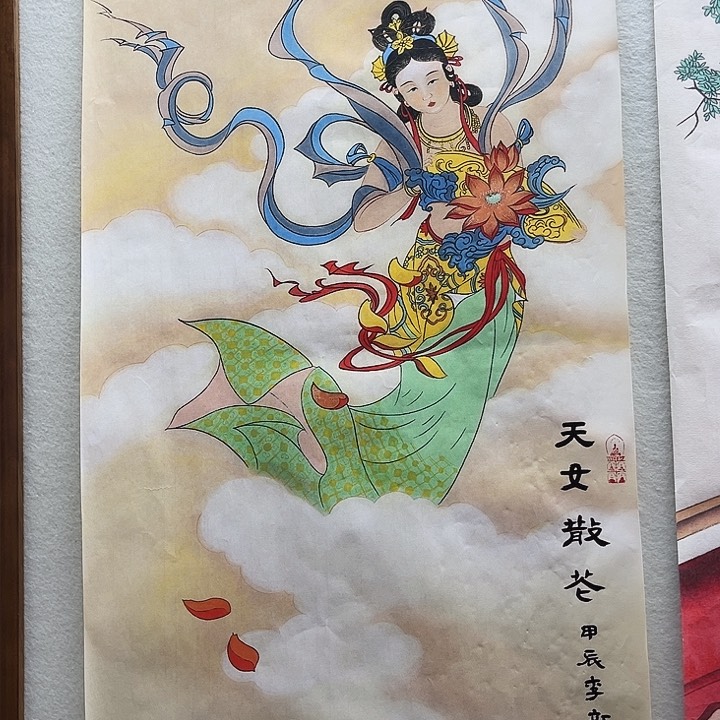 天女散花
甲辰李